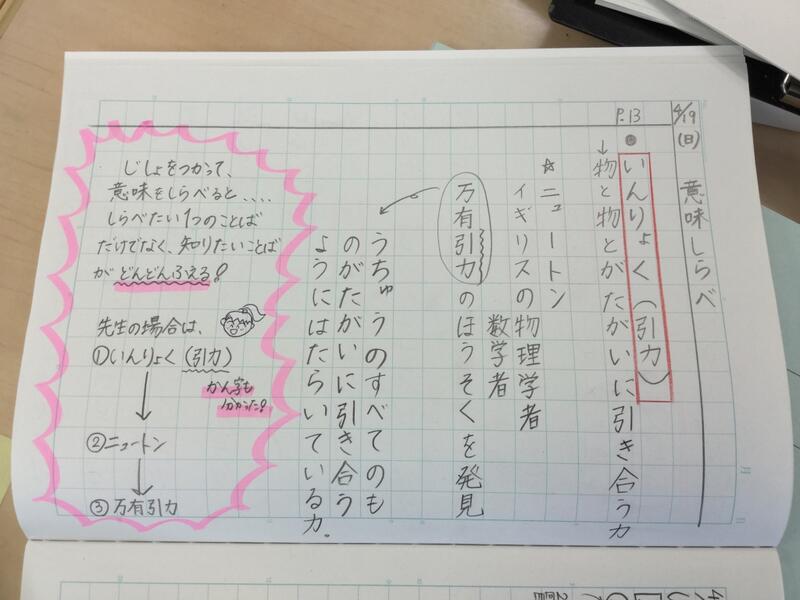 4/19
(日)
意味しらべ
P.13
いんりょく(引力)
↓物と物とがたがいに引き合う力
☆ニュートン
イギリスの物理学者
数学者
万有引力のほうそくを発見
うちゅうのすべてのも
のがたがいに引き合う
ようにはたらいている力。
じしょをつかって、
意味をしらべると....
しらべたい1つのことば
だけでなく、知りたいことば
がどんどんふえる!
先生の場合は、
①いんりょく(引力)
かん字も
分かった!
↓
②ニュートン
↓
③万有引力